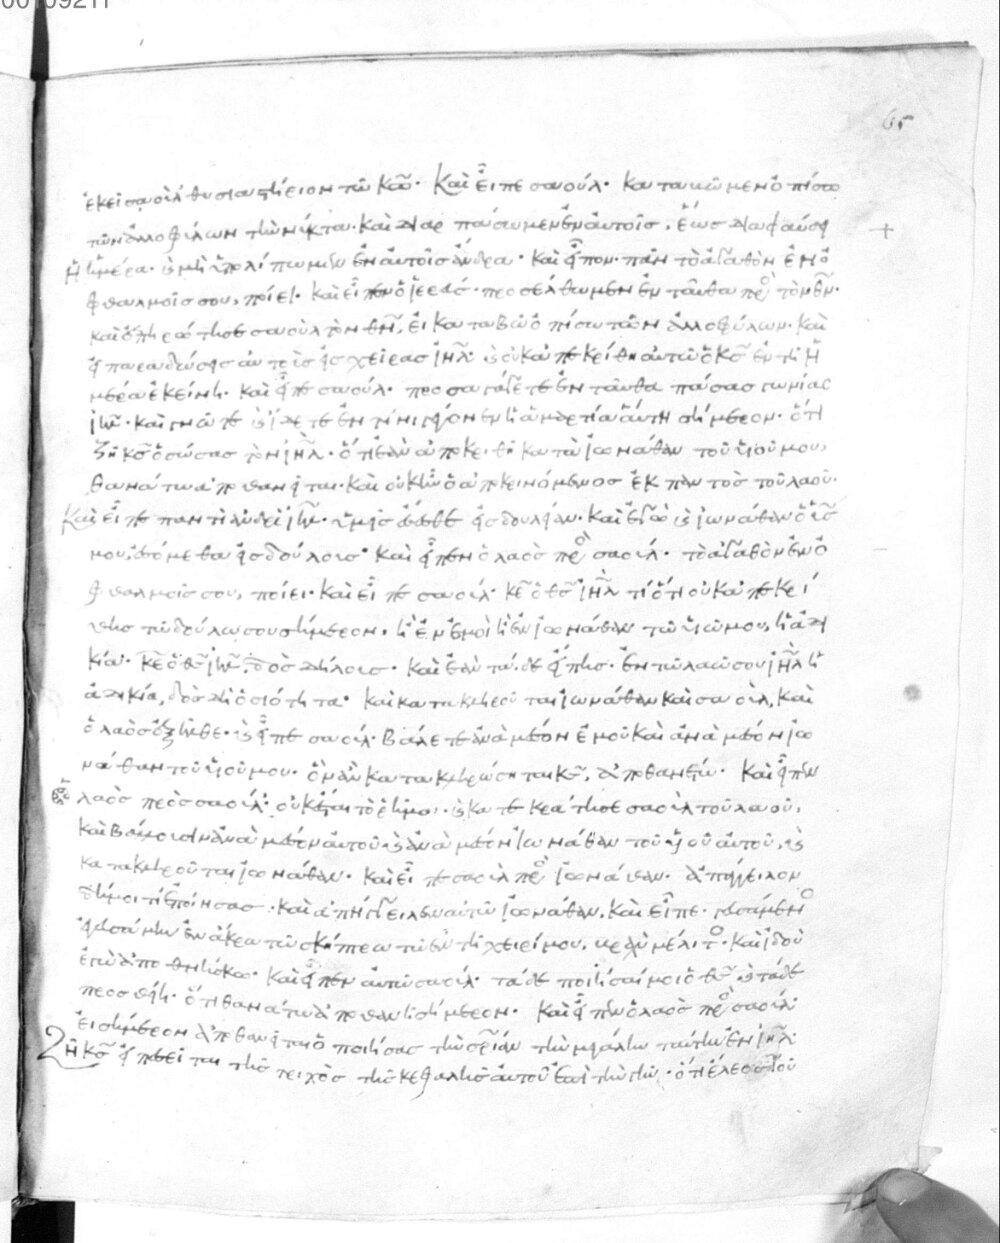 00109211
65
ἐκεῖ σαοὺλ θυσιαστήριον τῶ κω̅· Καὶ εἶπε σαούλ· καταβῶμεν ὀπίσω
τῶν ἀλλοφύλων τὴν νύκτα· καὶ διαρπάσωμεν ἐν αὐτοῖς, ἕως διαφαύσῃ
ἡ ἡμέρα· καὶ μὴ ὑπολίπωμεν ἐν αὐτοῖς ἄνδρα· καὶ εἶπον· πᾶν τὸ ἀγαθὸν ἐν ὀ
φθαλμοῖς σου, ποίει· καὶ εἶπεν ὁ ἱερεύς· προσέλθωμεν ἐνταῦθα πρὸ τὸν θν̅·
καὶ ἐπηρώτησε σαοὺλ τὸν θν̅, εἰ καταβῶ ὀπίσω τῶν ἀλλοφύλων· καὶ
εἰ παραδώσεις αὐτοὺς εἰς χεῖρας ιη̅λ· καὶ οὐκ ἀπεκρίθη αὐτῶ ὁ κς̅ ἐν τῆ ἡ
μέρα ἐκείνη· καὶ εἶπε σαούλ· προσαγάγετε ἐνταῦθα πάσας γωνίας
ιη̅λ· καὶ γνῶτε καὶ ἴδετε ἐν τίνι γέγονεν ἡ ἁμαρτία αὕτη σήμερον· ὅτι
ζῆ κς̅ ὁ σώσας τὸν ιη̅λ· ὅτι ἐὰν ἀποκριθῆ κατὰ ἰωνάθαν τοῦ υἱοῦ μου,
θανάτω ἀποθανεῖται· καὶ οὐκ ἦν ὁ ἀποκρινόμενος ἐκ παντὸς τοῦ λαοῦ·
Καὶ εἶπε παντὶ ἀνδρὶ ιη̅λ· ὑμεῖς ἔσεσθε εἰς δουλείαν· καὶ ἐγὼ καὶ ἰωνάθαν ὁ υἱός
μου, ἐσόμεθα εἰς δούλοις· καὶ εἶπεν ὁ λαὸς πρὸ σαούλ· τὸ ἀγαθὸν ἐν ὀ
φθαλμοῖς σου, ποίει· καὶ εἶπε σαούλ· κε̅ ὁ θς̅ ιη̅λ τί ὅτι οὐκ ἀπεκρί
θης τῶ δούλω σου σήμερον, ἢ ἐν ἐμοὶ ἢ ἐν ἰωνάθαν τῶ υἱῶ μου, ἡ ἀδι
κία· κε̅ ὁ θς̅ ιη̅λ· δὸς δήλοις· καὶ ἐὰν τάδε εἴπης· ἐν τῶ λαῶ σου ιη̅λ ἡ
ἀδικία, δὸς δὴ ὁσιότητα· καὶ κατακληροῦται ἰωνάθαν καὶ σαούλ, καὶ
ὁ λαὸς ἐξῆλθε· καὶ εἶπε σαούλ· βάλετε ἀνὰ μέσον ἐμοῦ καὶ ἀνὰ μέσον ἰω
νάθαν τοῦ υἱοῦ μου· ὃν ἂν κατακληρώσηται κς̅, ἀποθανέτω· Καὶ εἶπεν
λαὸς πρὸς σαούλ· οὐκ ἔσται τὸ ῥῆμα· καὶ κατεκράτησε σαοὺλ τοῦ λαοῦ,
καὶ βάλλουσιν ἀνὰ μέσον αὐτοῦ καὶ ἀνὰ μέσον ἰωνάθαν τοῦ υἱοῦ αὐτοῦ, καὶ
κατακληροῦται ἰωνάθαν· καὶ εἶπε σαοὺλ πρὸ ἰωνάθαν· ἀπάγγειλον
δή μοι τί ἐποίησας· καὶ ἀπήγγειλεν αὐτῶ ἰωνάθαν, καὶ εἶπε· γευσάμενο
ἐγευσάμην ἐν ἄκρω τῶ σκήπτρω τῶ ἐν τῆ χειρί μου, βραχὺ μέλιτο· καὶ ἰδοὺ
ἐγὼ ἀποθνήσκω· καὶ εἶπεν αὐτῶ σαούλ· τάδε ποιήσαι μοι ὁ θς̅ καὶ τάδε
προσθείη· ὅτι θανάτω ἀποθανῆ σήμερον· καὶ εἶπεν ὁ λαὸς πρὸ σαούλ·
εἰ σήμερον ἀποθανεῖται ὁ ποιήσας τὴν σρίαν τὴν μεγάλην ταύτην ἐν ιη̅λ·
Ζῆ κς̅ εἰ πεσεῖται τῆς τριχὸς τῆς κεφαλῆς αὐτοῦ ἐπὶ τὴν γῆν· ὅτι ἔλεος τοῦ